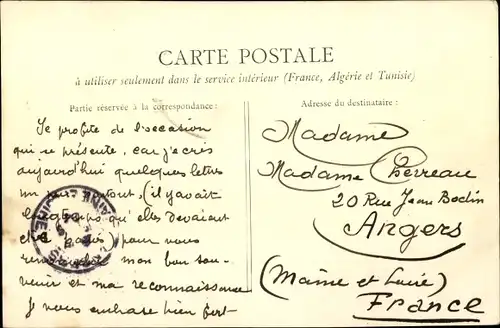 CARTE POSTALE
à utiliser seulement dans le service intérieur (France, Algérie et Tunisie)
Partie réservée à la correspondance:
Je profite de l'occasion
qui se présente, car j'ecris
aujourd'hui quelques lettres
un partout, (il y avait
longtemps qu'elles devaient
faites) pour vous
mon bon sou-
venir et ma reconnaissance
Je vous embrasse bien fort
Adresse du destinataire:
Madame
Madame Chevreau
20 Rue Jean Bodin
Angers
(Maine et Loire)
France